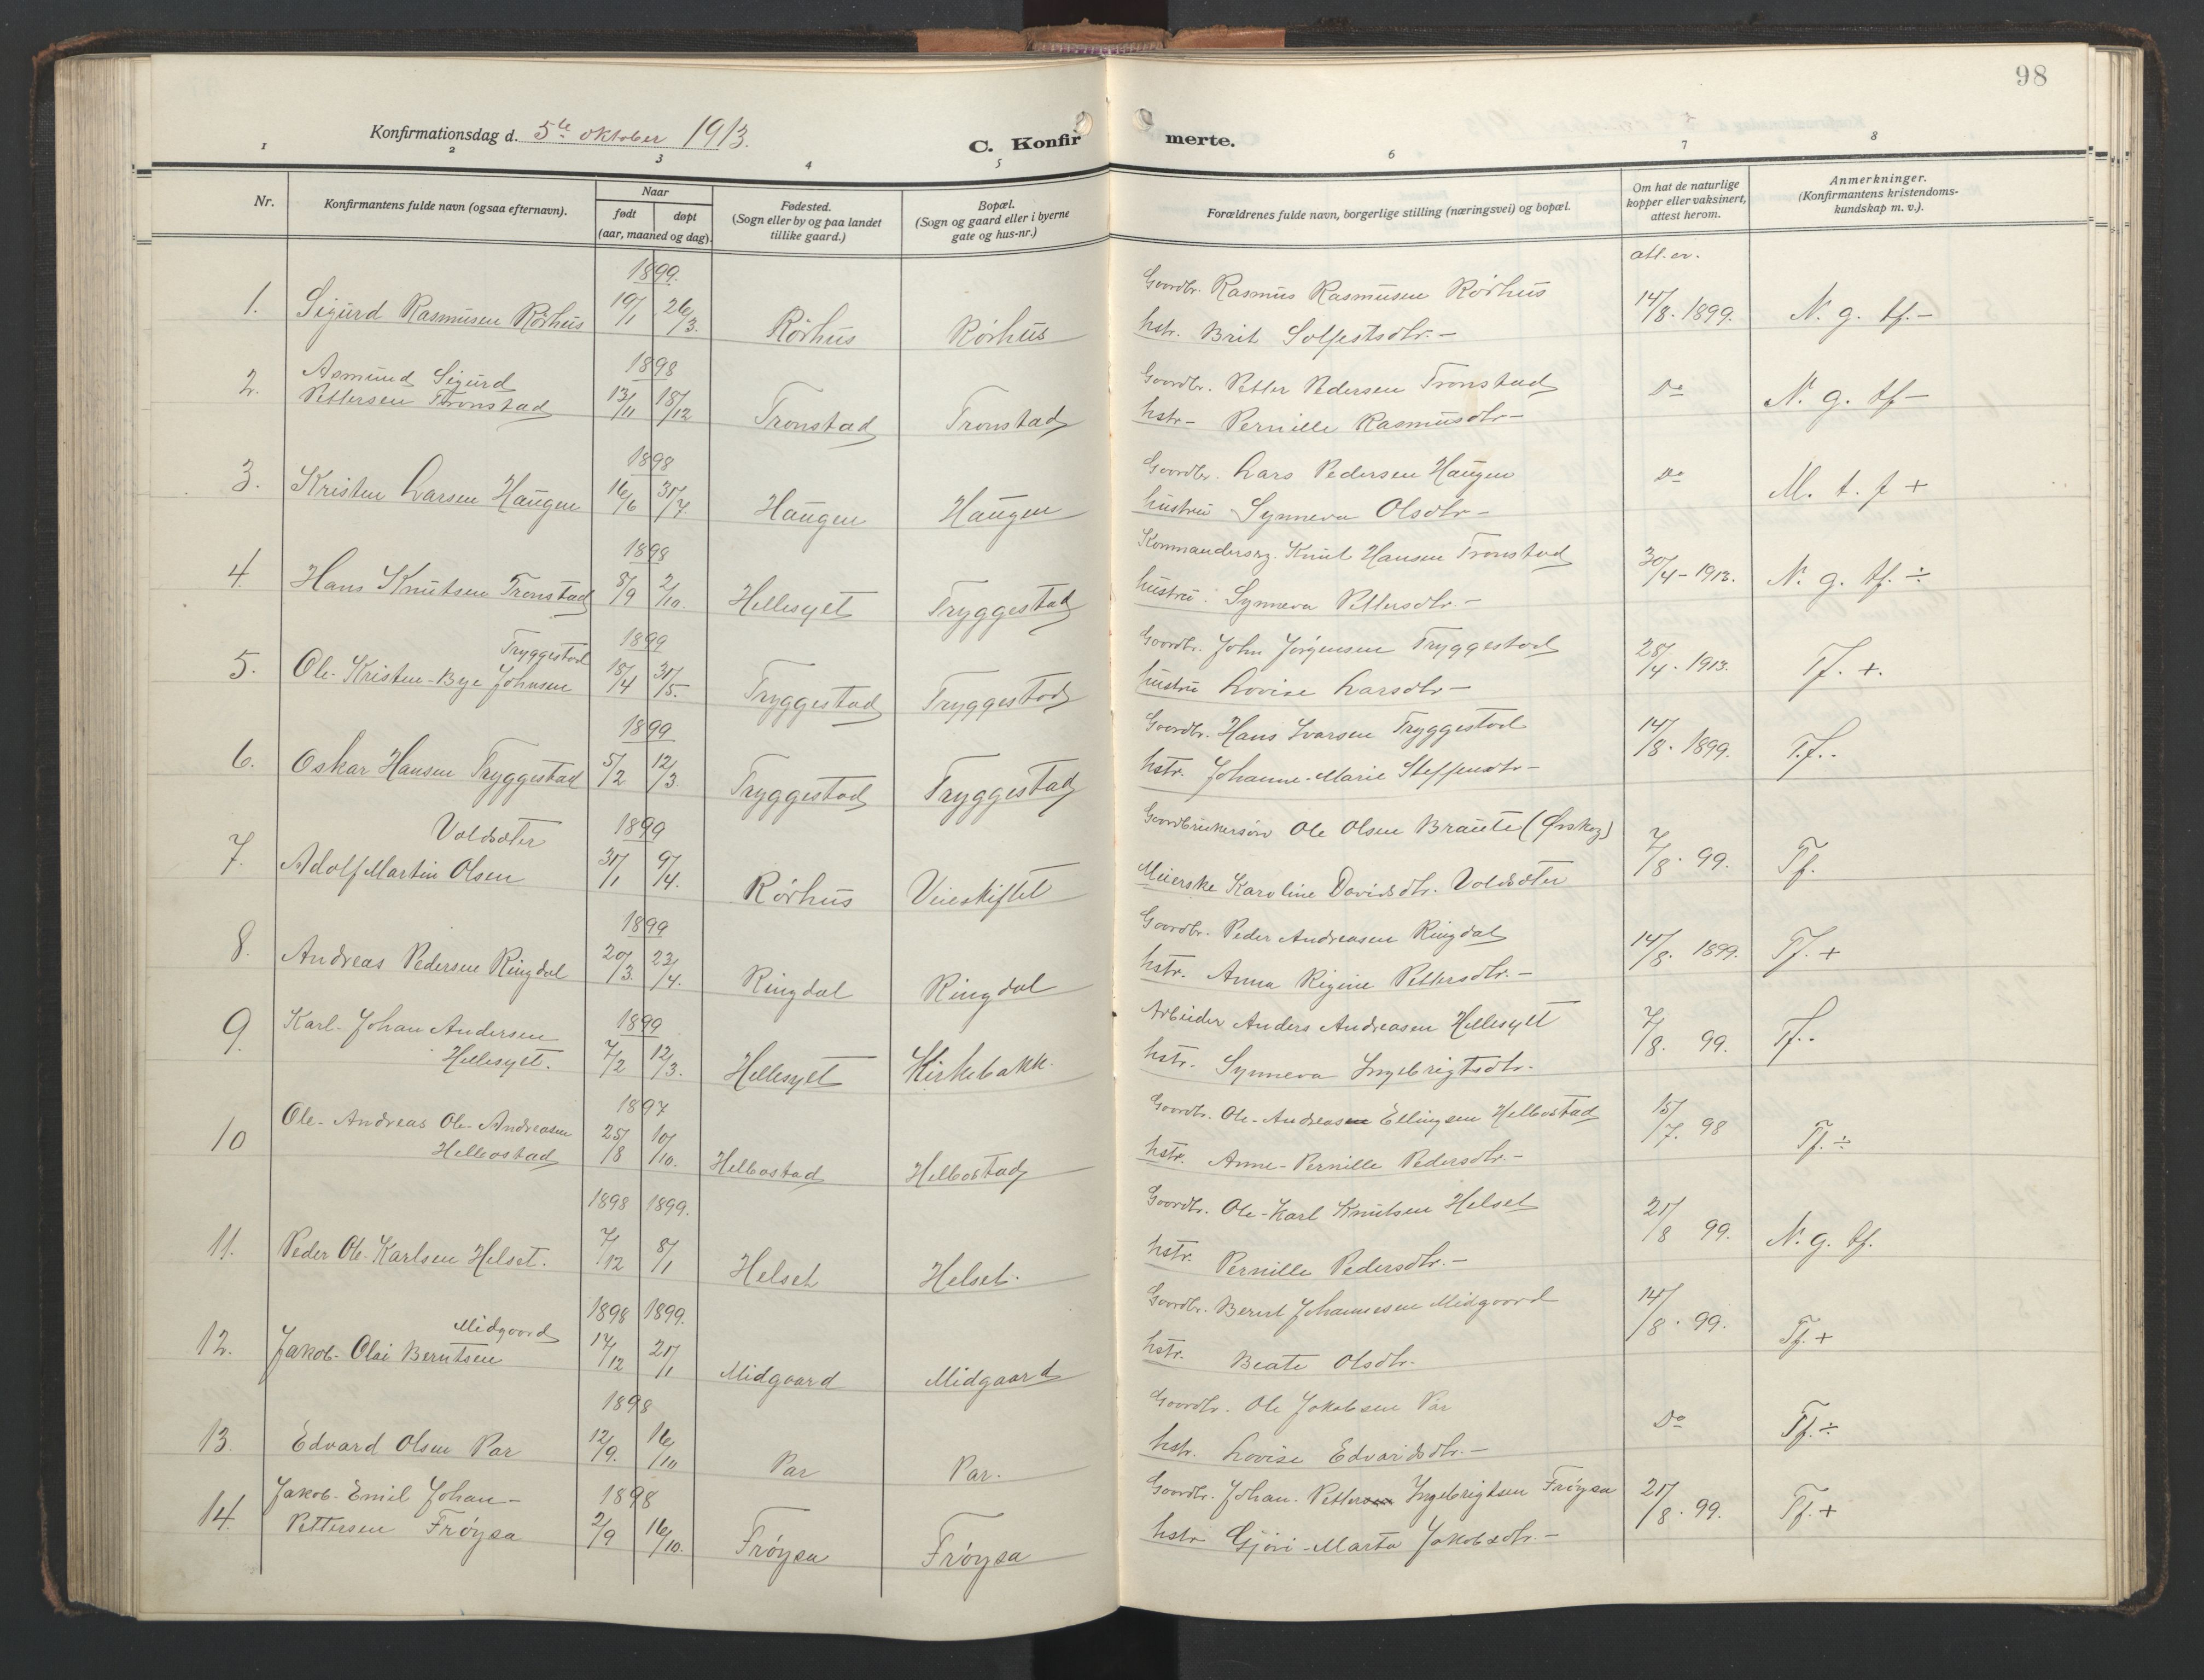 98
Konfirmationsdag d. 5te oktober 1913.
C. Konfirmerte.
1 2 3 4 5 6 7 8
Nr.
Konfirmantens fulde navn (ogsaa efternavn).
Naar
født
døpt
(aar, maaned og dag).
Fødested.
(Sogn eller by og paa landet
tillike gaard.)
Bopæl.
(Sogn og gaard eller i byerne
gate og hus-nr.)
Forældrenes fulde navn, borgerlige stilling (næringsvei) og bopæl.
Om hat de naturlige
kopper eller vaksinert,
attest herom.
Anmerkninger.
(Konfirmantens kristendoms-
kundskap m. v.).
att. av.
1899.
1. Sigurd Rasmusen Rörhus 19/1 26/3. Rörhus Rörhus
Gaardbr. Rasmus Rasmusen Rörhus
hstr. Brit Solfestsdtr.-
14/8. 1899. N. g. tf.-
1898
2. Asmund Sigurd
Pettersen Tronstad 13/11 18/12 Tronstad Tronstad
Gaardbr. Petter Pedersen Tronstad
hstr- Pernille Rasmusdtr-
Do N. g. tf-
1898
3. Kristen Larsen Haugen 16/6 31/7. Haugen Haugen
Gaardbr. Lars Pedersen Haugen
hustru Synneva Olsdtr-
Do M. t. f +
1898
4. Hans Knutsen Tronstad 8/9 2/10. Hellesylt Tryggestad
Kommandersrg. Knut Hansen Tronstad
hustru. Synneva Pettersdtr.-
30/4-1913. N. g. tf. ÷
Tryggestad 1899
5. Ole-Kristen-Bye Johnsen 18/4 31/5. Tryggestad Tryggestad
Gaardbr. John Jørgensen Tryggestad
hustru Lovise Larsdtr-
28/4. 1913. Tf. +.
1899
6. Oskar Hansen Tryggestad 5/2 12/3. Tryggestad Tryggestad
Gaardbr. Hans Ivarsen Tryggestad
hstr. Johanne-Marie Steffensdtr-
14/8. 1899. T.f..
Voldsæter 1899
7. Adolf Martin Olsen 31/1 9/4. Rörhus Veieskiftet
Gaardbrukersøn Ole Olsen Braute (Ørskog)
Meierske Karoline Davidsdtr. Voldsæter
7/8. 99. Tf.
1899
8. Andreas Pedersen Ringdal 20/3. 23/4. Ringdal Ringdal
Gaardbr. Peder Andreasen Ringdal
hstr. Anna Rigine Pettersdtr.-
14/8. 1899. Tf. +
1899
9. Karl-Johan Andersen
Hellesylt. 7/2 12/3. Hellesylt Kirkebakk.
Arbeider Anders Andreasen Hellesylt
hstr. Synneva Ingebrigtsdtr.
7/8. 99. Tf..
1897
10 Ole-Andreas Ole-Andreasen
Hellbostad 25/8 10/10. Hellbostad Hellbostad
Gaardbr. Ole-Andreasen Ellingsen Hellbostad
hstr. Anne-Pernille Pedersdtr.-
15/7. 98 Tf. ÷
1898 1899.
11. Peder Ole-Karlsen Helset. 7/12 8/1 Helset Helset.
Gaardbr. Ole-Karl Knutsen Helset
hstr. Pernille Pedersdtr.-
21/8 99. N. g. tf.
1898 1899.
12. Midgaard
Jakob-Olai Berntsen 14/12 21/1 Midgaard Midgaard
Gaardbr. Bernt Johannesen Midgaard
hstr. Beate Olsdtr.
14/8. 99. Tf. +
1898
13. Edvard Olsen Par 12/9. 16/10 Par Par.
Gaardbr. Ole Jakobsen Par
hstr. Lovise Edvardsdtr.-
Do Tf. ÷
1898
14. Jakob-Emil Johan-
Pettersen Frøysa 2/9 16/10. Frøysa Frøysa
Gaardbr. Johan-Pettersen Ingebrigtsen Frøysa
hstr Gjøri-Marta Jakobsdtr.-
21/8. 99. Tf. +